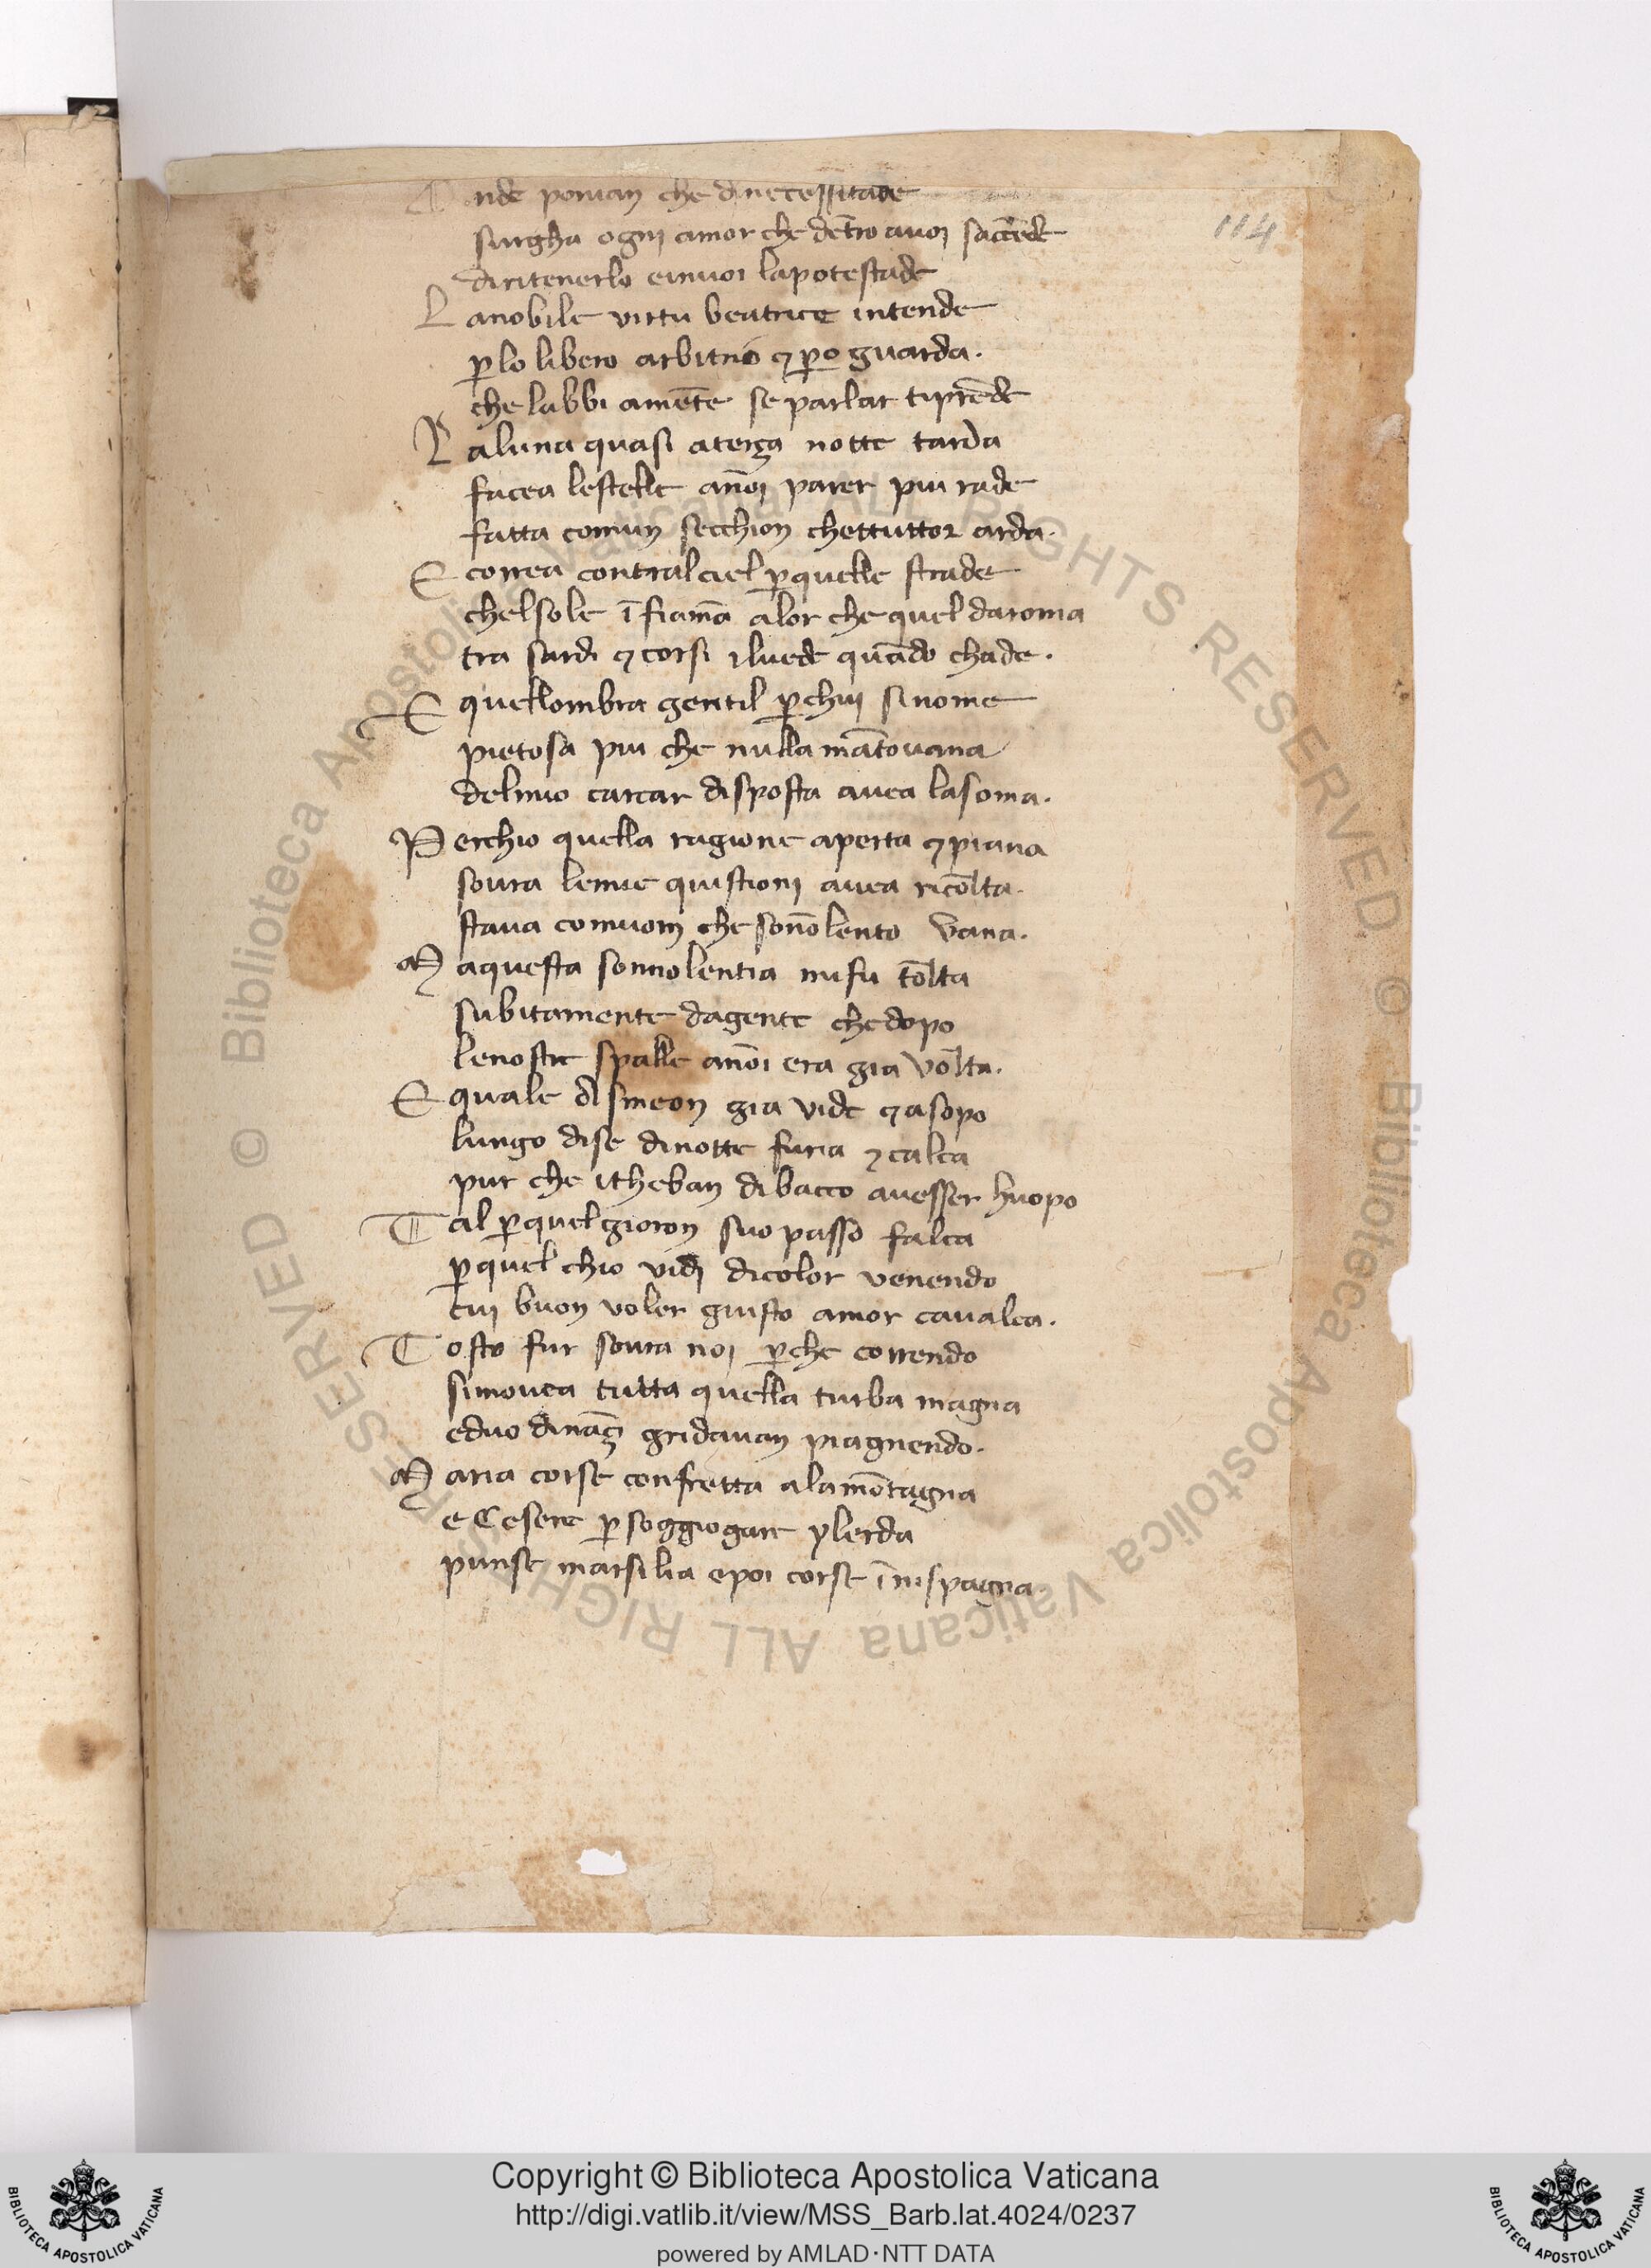 Onde ponian che dinecessitade
surgha ogni amor che dētro auoi saccēde
diritenerlo einuoi lapotestade
La nobile uirtu beatrice intende
ꝑlo libero arbitrio ⁊ ꝑo guarda.
che labbi amēte se parlar tiprēde
La luna quasi aterça notte tarda
facea lestelle anōi parer piu rade
fatta comun secchion chettuttor arda.
E correa contral ciel ꝑquelle strade
chelsole īfiamā alor che quel daroma
tra sardi ⁊ corsi iluede quādo chade.
E quellombra gentil ꝑchui sinome
pietosa piu che nulla mātouana
delmio carcar disposta auea lasoma.
Perchio quella ragione aperta ⁊ piana
soura lemie quistioni auea ricolta.
staua comuom che sonōlento vana.
Ma questa sonnolentia mifu tolta
subitamente dagente che dopo
lenostre spalle anōi era gia volta.
E quale Ismeon gia vide ⁊ asopo
lungo dise dinotte furia ⁊ calca
pur che itheban dibacco auesser huopo
Tal ꝑquel gioron suo passo falca
ꝑquel chio vidi dicolor venendo
cui buon voler giusto amor caualca.
Tosto fur soura noi ꝑche correndo
simouea tutta quella turba magna
eduo dināçi gridauan piagnendo.
Maria corse confretta alamōtagna
e Cesere ꝑ soggiogare ylerda
punse marsilia epoi corse īnispagna.
114
© Biblioteca Apostolica Vaticana ALL RIGHTS RESERVED © Biblioteca Apostolica Vaticana ALL RIGHTS RESERVED
Copyright © Biblioteca Apostolica Vaticana
http://digi.vatlib.it/view/MSS_Barb.lat.4024/0237
powered by AMLAD·NTT DATA
BIBLIOTECA APOSTOLICA VATICANA
BIBLIOTECA APOSTOLICA VATICANA